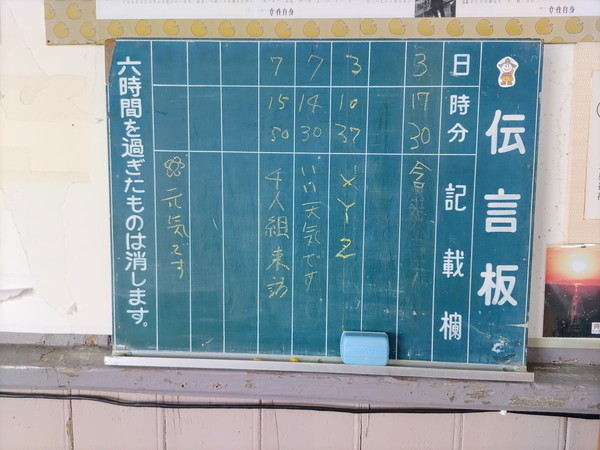 伝言板
日
時分
記載欄
3
17
30
3
10
37
XYZ
7
14
30
いい天気です
7
15
50
千人組来訪
元気です
六時間を過ぎたものは消します。